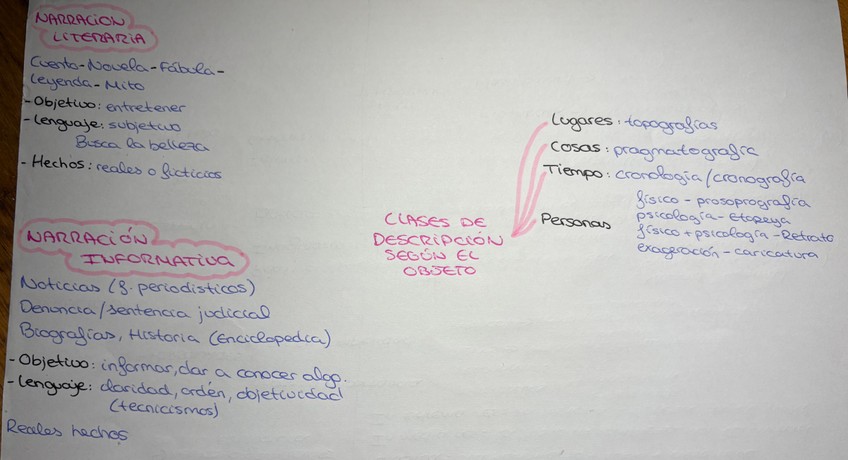 NARRACION
LITERARIA
Cuento-Novela-Fábula-
Leyenda-Mito
-Objetivo: entretener
-Lenguaje: subjetivo
Busca la belleza
-Hechos: reales o ficticios
NARRACIÓN
INFORMATIVA
Noticias (g. periodísticos)
Denuncia/sentencia judicial
Biografías, Historia (Enciclopedica)
-Objetivo: informar, dar a conocer algo.
-Lenguaje: claridad, orden, objetividad
(tecnicismos)
Reales hechos
CLASES DE
DESCRIPCIÓN
SEGÚN EL
OBJETO
Lugares: topografías
Cosas: pragmatografía
Tiempo: cronología/cronografía
Personas
físico - prosoprografía
psicología - etopeya
físico + psicología - Retrato
exageración - caricatura